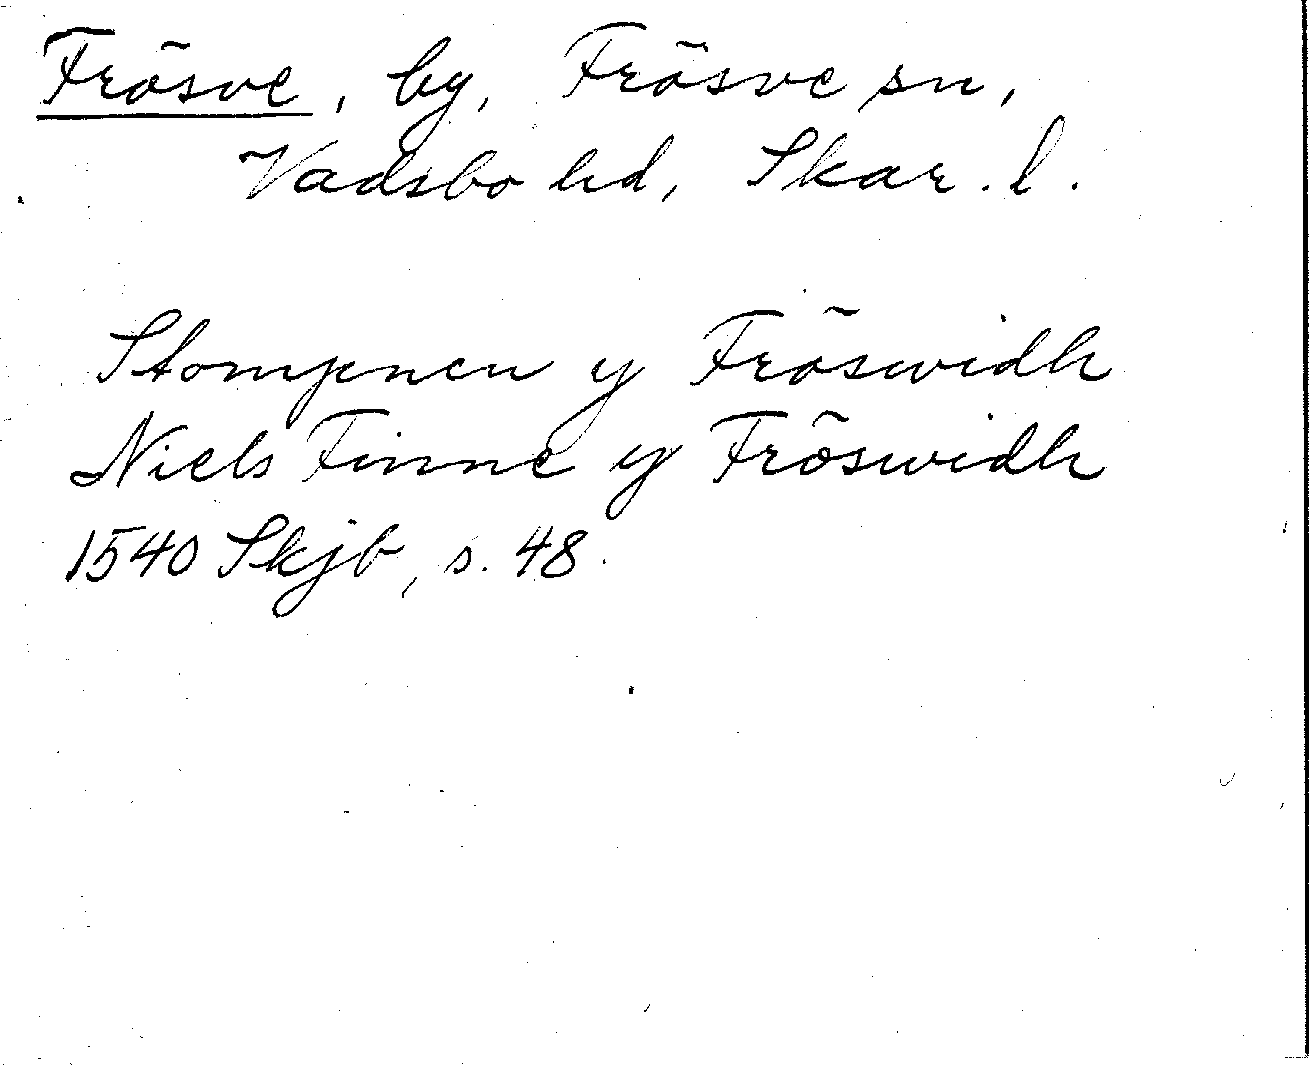 Frösve, by, Frösve sn,
Vadsbo hd, Skar. l.
Stompnen y Fröswidh
Niels Finne y Fröswidh
1540 Skjb, s. 48.